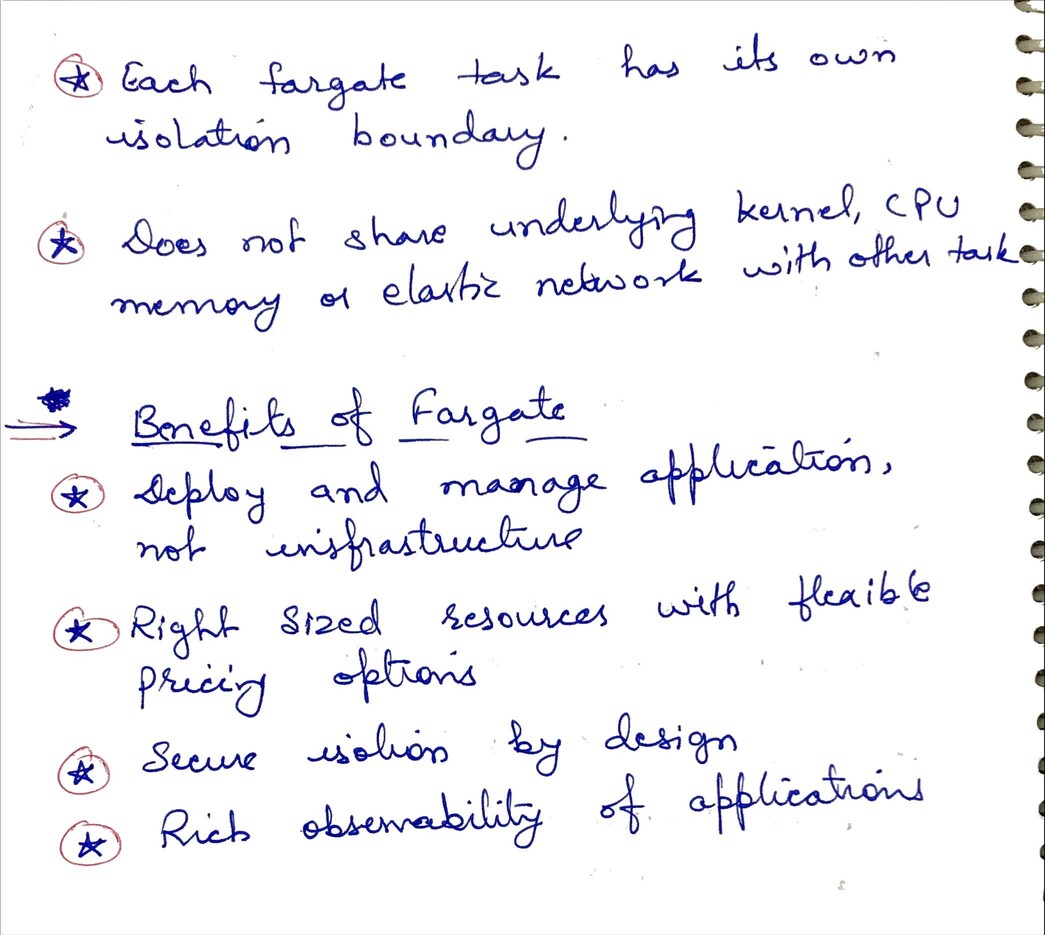 Each fargate task has its own
isolation boundary.
Does not share underlying kernel, CPU
memory or elastic network with other task
Benefits of Fargate
Deploy and manage application,
not infrastructure
Right Sized resources with flexible
pricing options
Secure isolion by design
Rich observability of applications